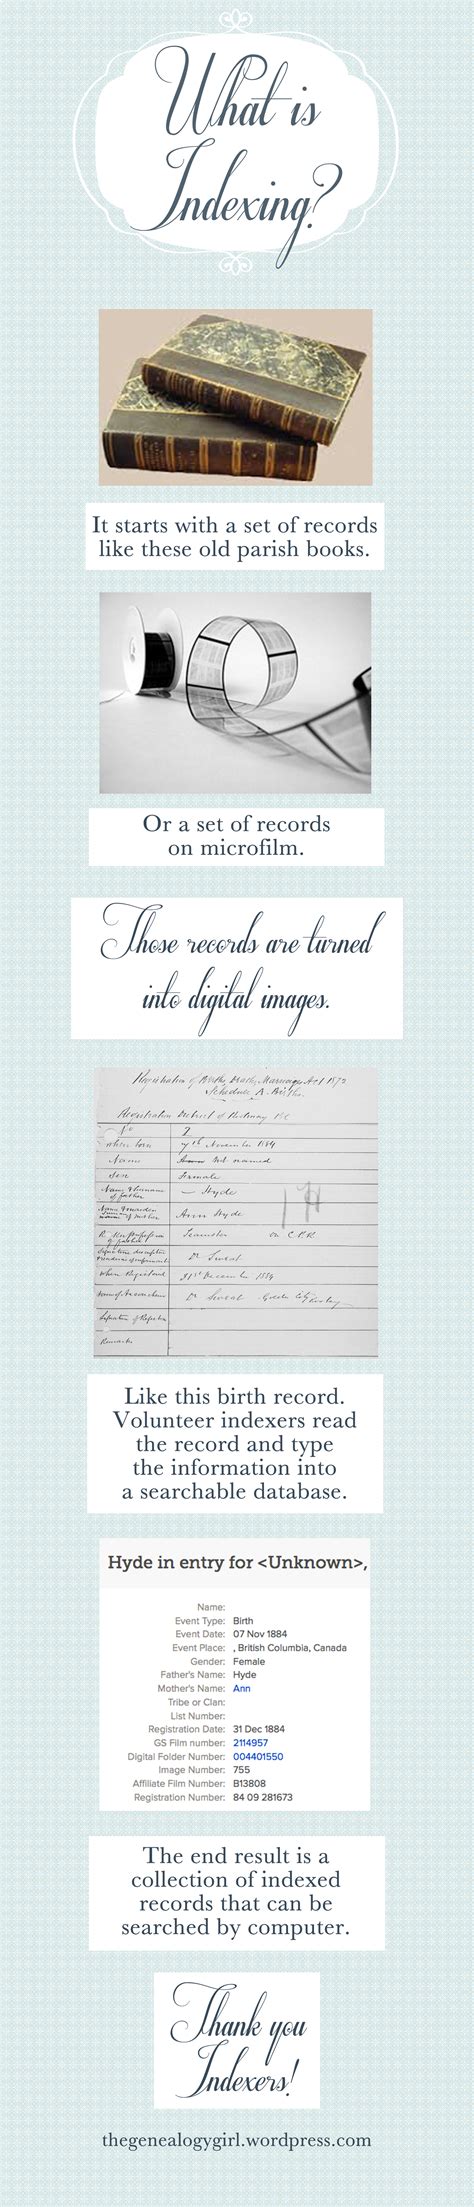 What is
Indexing?
It starts with a set of records
like these old parish books.
Or a set of records
on microfilm.
Those records are turned
into digital images.
Registration of Births, Deaths, Marriages Act 1872
Schedule A. Births.
Registration District of
No 7
When born 7th November 1884
Name not named
Sex Female
Name & Surname
of father — Hyde
Name & maiden
name of mother Ann Hyde
of father Teamster on C.P.R.
Signature description
& residence of informant Dr Sweat
When Registered 31st December 1884
Dr Sweat Golden City
Signature of Registrar
Remarks
Like this birth record.
Volunteer indexers read
the record and type
the information into
a searchable database.
Hyde in entry for <Unknown>,
Name:
Event Type: Birth
Event Date: 07 Nov 1884
Event Place: , British Columbia, Canada
Gender: Female
Father's Name: Hyde
Mother's Name: Ann
Tribe or Clan:
List Number:
Registration Date: 31 Dec 1884
GS Film number: 2114957
Digital Folder Number: 004401550
Image Number: 755
Affiliate Film Number: B13808
Registration Number: 84 09 281673
The end result is a
collection of indexed
records that can be
searched by computer.
Thank you
Indexers!
thegenealogygirl.wordpress.com